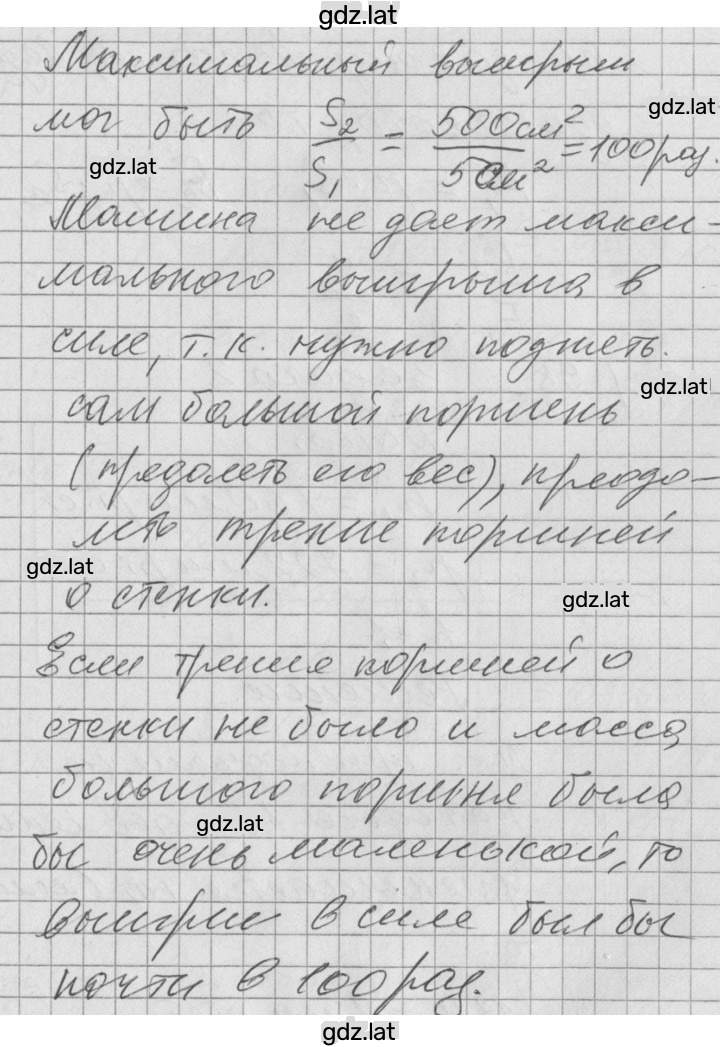 gdz.lat
Максимальный выигрыш
gdz.lat
мог быть S₂/S₁ = 500см²/5см² = 100 раз.
gdz.lat
Машина не дает макси-
мального выигрыша в
силе, т.к. нужно поднять
gdz.lat
сам большой поршень
(преодолеть его вес), преодо-
леть трение поршней
gdz.lat
о стенки.
gdz.lat
Если трения поршней о
стенки не было и масса
большого поршня была
gdz.lat
бы очень маленькой, то
выигрыш в силе был бы
почти в 100 раз.
gdz.lat